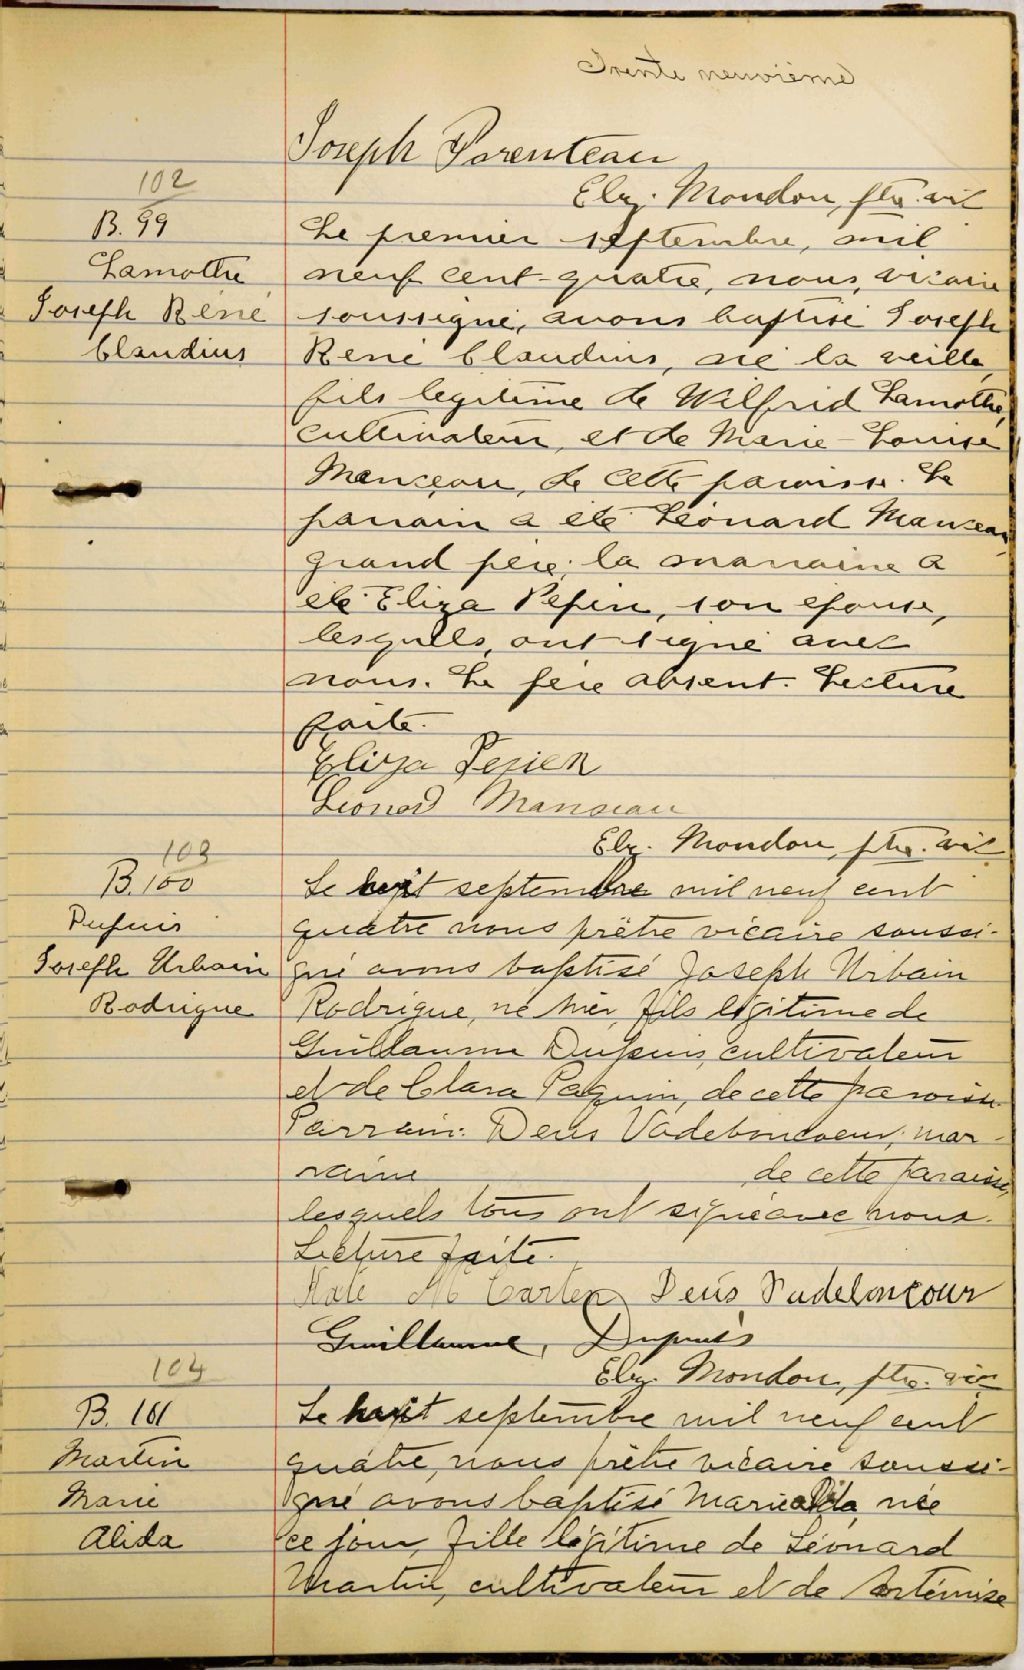 Trente neuvième
Joseph Parenteau
Elz. Mondou, ptre. vic
102
B. 99
Lamothe
Joseph Réné
Claudius
Le premier septembre, mil
neuf cent-quatre, nous, vicaire
soussigné, avons baptisé Joseph
René Claudius, né la veille,
fils légitime de Wilfrid Lamothe,
cultivateur, et de Marie-Louise
Manseau, de cette paroisse. Le
parrain a été Léonard Manseau,
grand père; la marraine a
été Eliza Pepin, son épouse,
lesquels, ont signé avec
nous. Le père absent. Lecture
faite.
Eliza Pepien
Léonard Manseau
Elz. Mondou, ptre. vic
103
B. 100
Dupuis
Joseph Urbain
Rodrigue
Le huit septembre mil neuf cent
quatre nous prêtre vicaire soussi-
gné avons baptisé Joseph Urbain
Rodrigue, né hier, fils légitime de
Guillaume Dupuis, cultivateur
et de Clara Paquin, de cette paroisse.
Parrain: Denis Vadeboncoeur; mar-
raine de cette paroisse,
lesquels tous ont signé avec nous.
Lecture faite.
Kate Mc Carten Denis Vadeboncour
Guillaume, Dupuis
Elz. Mondou, ptre. vic
104
B. 101
Martin
Marie
Alida
Le huit septembre mil neuf cent
quatre, nous prêtre vicaire soussi-
gné avons baptisé Marie Alida, née
ce jour, fille légitime de Léonard
Martin, cultivateur et de Artémise